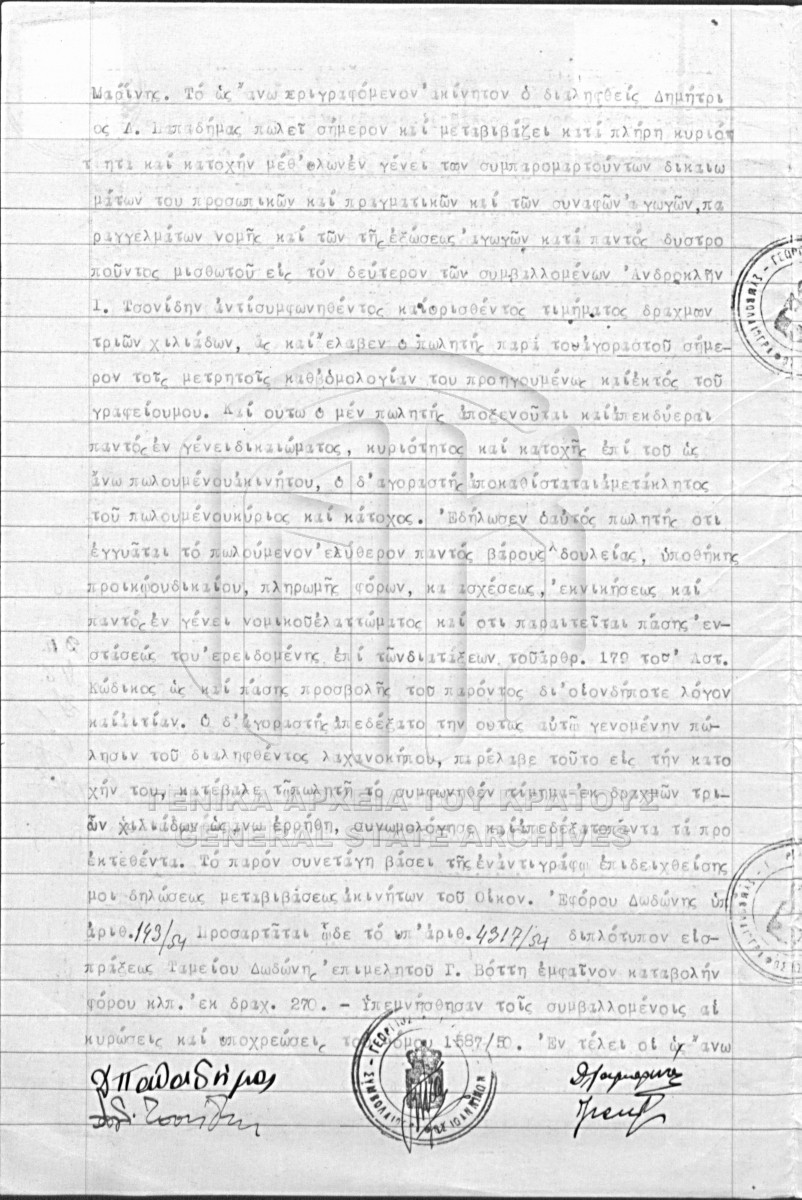 Μαρίνης. Τό ὡς ἄνω περιγραφόμενον ἀκίνητον ὁ διαληφθείς Δημήτρι
ος Δ. Παπαδήμας πωλεῖ σήμερον καί μεταβιβάζει κατά πλήρη κυριότ
τητα καί κατοχήν μεθ'ὅλων ἐν γένει των συμπαρομαρτούντων δικαιω
μάτων του προσωπικῶν καί πραγματικῶν καί τῶν συναφῶν ἀγωγῶν, πα
ραγγελμάτων νομῆς καί τῶν τῆς ἐξώσεως ἀγωγῶν κατά παντός δυστρο
ποῦντος μισθωτοῦ εἰς τόν δεύτερον τῶν συμβαλλομένων Ἀνδροκλῆν
Ι. Τσονίδην ἀντί συμφωνηθέντος καί ὁρισθέντος τιμήματος δραχμων
τριῶν χιλιάδων, ἅς καί ἔλαβεν ὁ πωλητής παρά τοῦ ἀγοραστοῦ σήμε-
ρον τοῖς μετρητοῖς καθ'ὁμολογίαν του προηγουμένως καί ἐκτός τοῦ
γραφείου μου. Καί οὕτω ὁ μέν πωλητής ἀποξενοῦται καί ἀπεκδύεραι
παντός ἐν γένει δικαιώματος, κυριότητος καί κατοχῆς ἐπί τοῦ ὡς
ἄνω πωλουμένου ἀκινήτου, ὁ δ'ἀγοραστής ἀποκαθίσταται ἀμετάκλητος
τοῦ πωλουμένου κύριος καί κάτοχος. Ἐδήλωσεν ὁ αὐτός πωλητής οτι
ἐγγυᾶται τό πωλούμενον ἐλύθερον παντός βάρους δουλείας, ὑποθήκης
προικώου δικαίου, πληρωμῆς φόρων, κατασχέσεως, ἐκνικήσεως καί
παντός ἐν γένει νομικοῦ ἐλαττώματος καί οτι παραιτεῖται πάσης ἐν-
στάσεώς του ἐρειδομένης ἐπί τῶν διατάξεων τοῦ ἄρθρ. 179 τοῦ Ἀστ.
Κώδικος ὡς καί πάσης προσβολῆς τοῦ παρόντος δι'οἱονδήποτε λόγον
καί αἰτίαν. Ὁ δ'ἀγοραστής ἀπεδέξατο την οὕτως αὐτῷ γενομένην πώ-
λησιν τοῦ διαληφθέντος λαχανοκήπου, παρέλαβε τοῦτο εἰς τήν κατο
χήν του, κατέβαλε τῷ πωλητῇ τό συμφωνηθέν τίμημα ἐκ δραχμῶν τρι-
ῶν χιλιάδων ὡς ἄνω ἐρρήθη, συνωμολόγησε καί ἀπεδέξατο πάντα τά προ
εκτεθέντα. Τό παρόν συνετάγη βάσει τῆς ἐν ἀντιγράφῳ ἐπιδειχθείσης
μοι δηλώσεως μεταβιβάσεως ἀκινήτων τοῦ Οἰκον. Ἐφόρου Δωδώνης ὑπ
ἀριθ. 143/54 Προσαρτᾶται ᾧδε τό ὑπ'ἀριθ. 4317/54 διπλότυπον εἰσ-
πράξεως Ταμείου Δωδώνης ἐπιμελητοῦ Γ. Βόττη ἐμφαῖνον καταβολήν
φόρου κλπ. ἐκ δραχ. 270. - Ὑπεμνήσθησαν τοῖς συμβαλλομένοις αἱ
κυρώσεις καί ὑποχρεώσεις του νόμου 1587/50. Ἐν τέλει οἱ ὡς ἄνω
Δ Παπαδήμας
ΓΕΝΙΚΑ ΑΡΧΕΙΑ ΤΟΥ ΚΡΑΤΟΥΣ
GENERAL STATE ARCHIVES